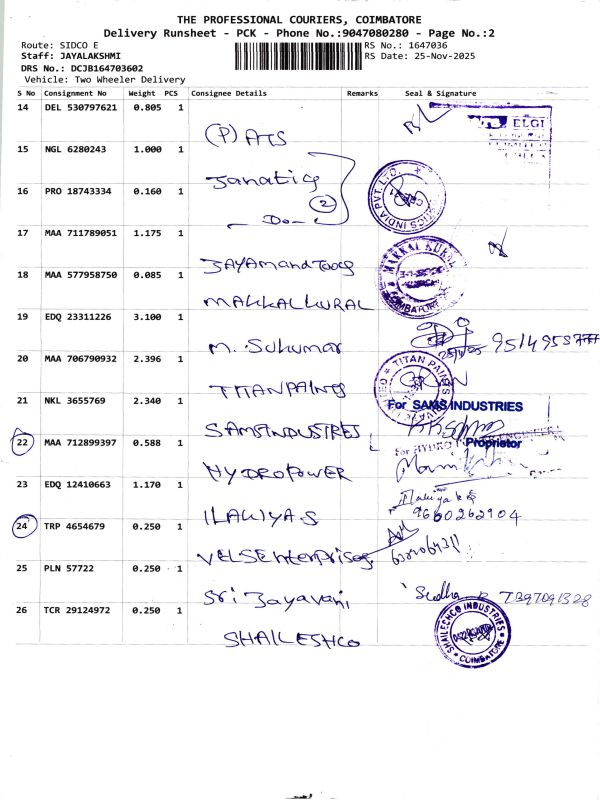 THE PROFESSIONAL COURIERS, COIMBATORE
Delivery Runsheet - PCK - Phone No.:9047080280 - Page No.:2
Route: SIDCO E
RS No.: 1647036
Staff: JAYALAKSHMI
RS Date: 25-Nov-2025
DRS No.: DCJB164703602
Vehicle: Two Wheeler Delivery
S No Consignment No Weight PCS Consignee Details Remarks Seal & Signature
14 DEL 530797621 0.805 1
(P) ATS
ELGI
15 NGL 6280243 1.000 1
Janatics
16 PRO 18743334 0.160 1
(2)
INDIA PVT. LTD.
17 MAA 711789051 1.175 1
JAYAmand Tools
18 MAA 577958750 0.085 1
MAKKALKURAL
MAKKAL KURAL
COIMBATORE
19 EDQ 23311226 3.100 1
M. Sukumar
20 MAA 706790932 2.396 1
TITANPAINTS
TITAN PAINTS
21 NKL 3655769 2.340 1
For SAMS INDUSTRIES
SAMSINDUSTRIES
Proprietor
22 MAA 712899397 0.588 1
For HYDRO
HYDROPOWER
23 EDQ 12410663 1.170 1
ILAKIYA S
9660262904
24 TRP 4654679 0.250 1
VELSEnterprises
25 PLN 57722 0.250 1
Sri Jayavani
Sudha
26 TCR 29124972 0.250 1
SHAILESHCO
SHAILECHCO INDUSTRIES
COIMBATORE